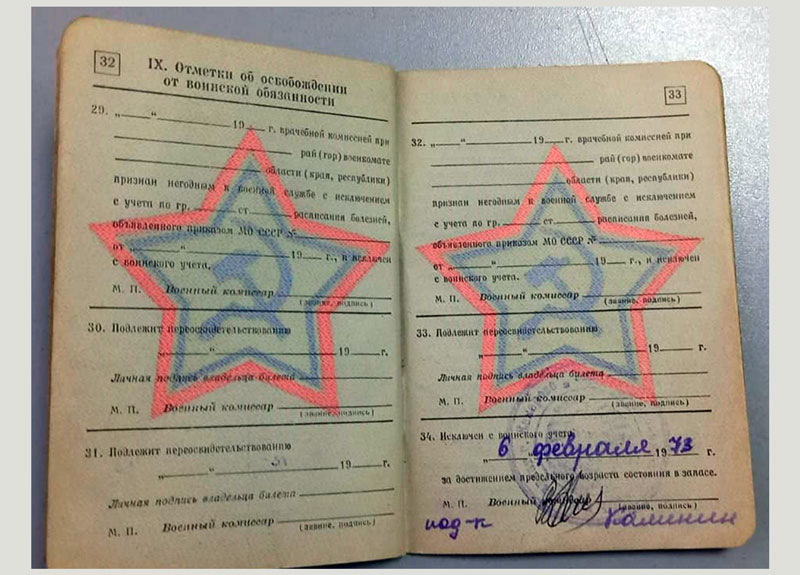 32
IX. Отметки об освобождении
от воинской обязанности
29. „ “ 19 г. врачебной комиссией при
рай (гор) военкомате
области (края, республики)
признан негодным к военной службе с исключением
с учета по гр. ст. расписания болезней,
объявленного приказом МО СССР №
от „ “ 19 г., и исключен
с воинского учета.
М. П. Военный комиссар
(звание, подпись)
30. Подлежит переосвидетельствованию
„ “ 19 г.
Личная подпись владельца билета
М. П. Военный комиссар
(звание, подпись)
31. Подлежит переосвидетельствованию
„ “ 19 г.
Личная подпись владельца билета
М. П. Военный комиссар
(звание, подпись)
33
32. „ “ 19 г. врачебной комиссией при
рай (гор) военкомате
области (края, республики)
признан негодным к военной службе с исключением
с учета по гр. ст. расписания болезней,
объявленного приказом МО СССР №
от „ “ 19 г., и исключен
с воинского учета.
М. П. Военный комиссар
(звание, подпись)
33. Подлежит переосвидетельствованию
„ “ 19 г.
Личная подпись владельца билета
М. П. Военный комиссар
(звание, подпись)
34. Исключен с воинского учета
„ 6 “ февраля 1973 г.
за достижением предельного возраста состояния в запасе.
М. П. Военный комиссар
(звание, подпись)
под-к Калинин